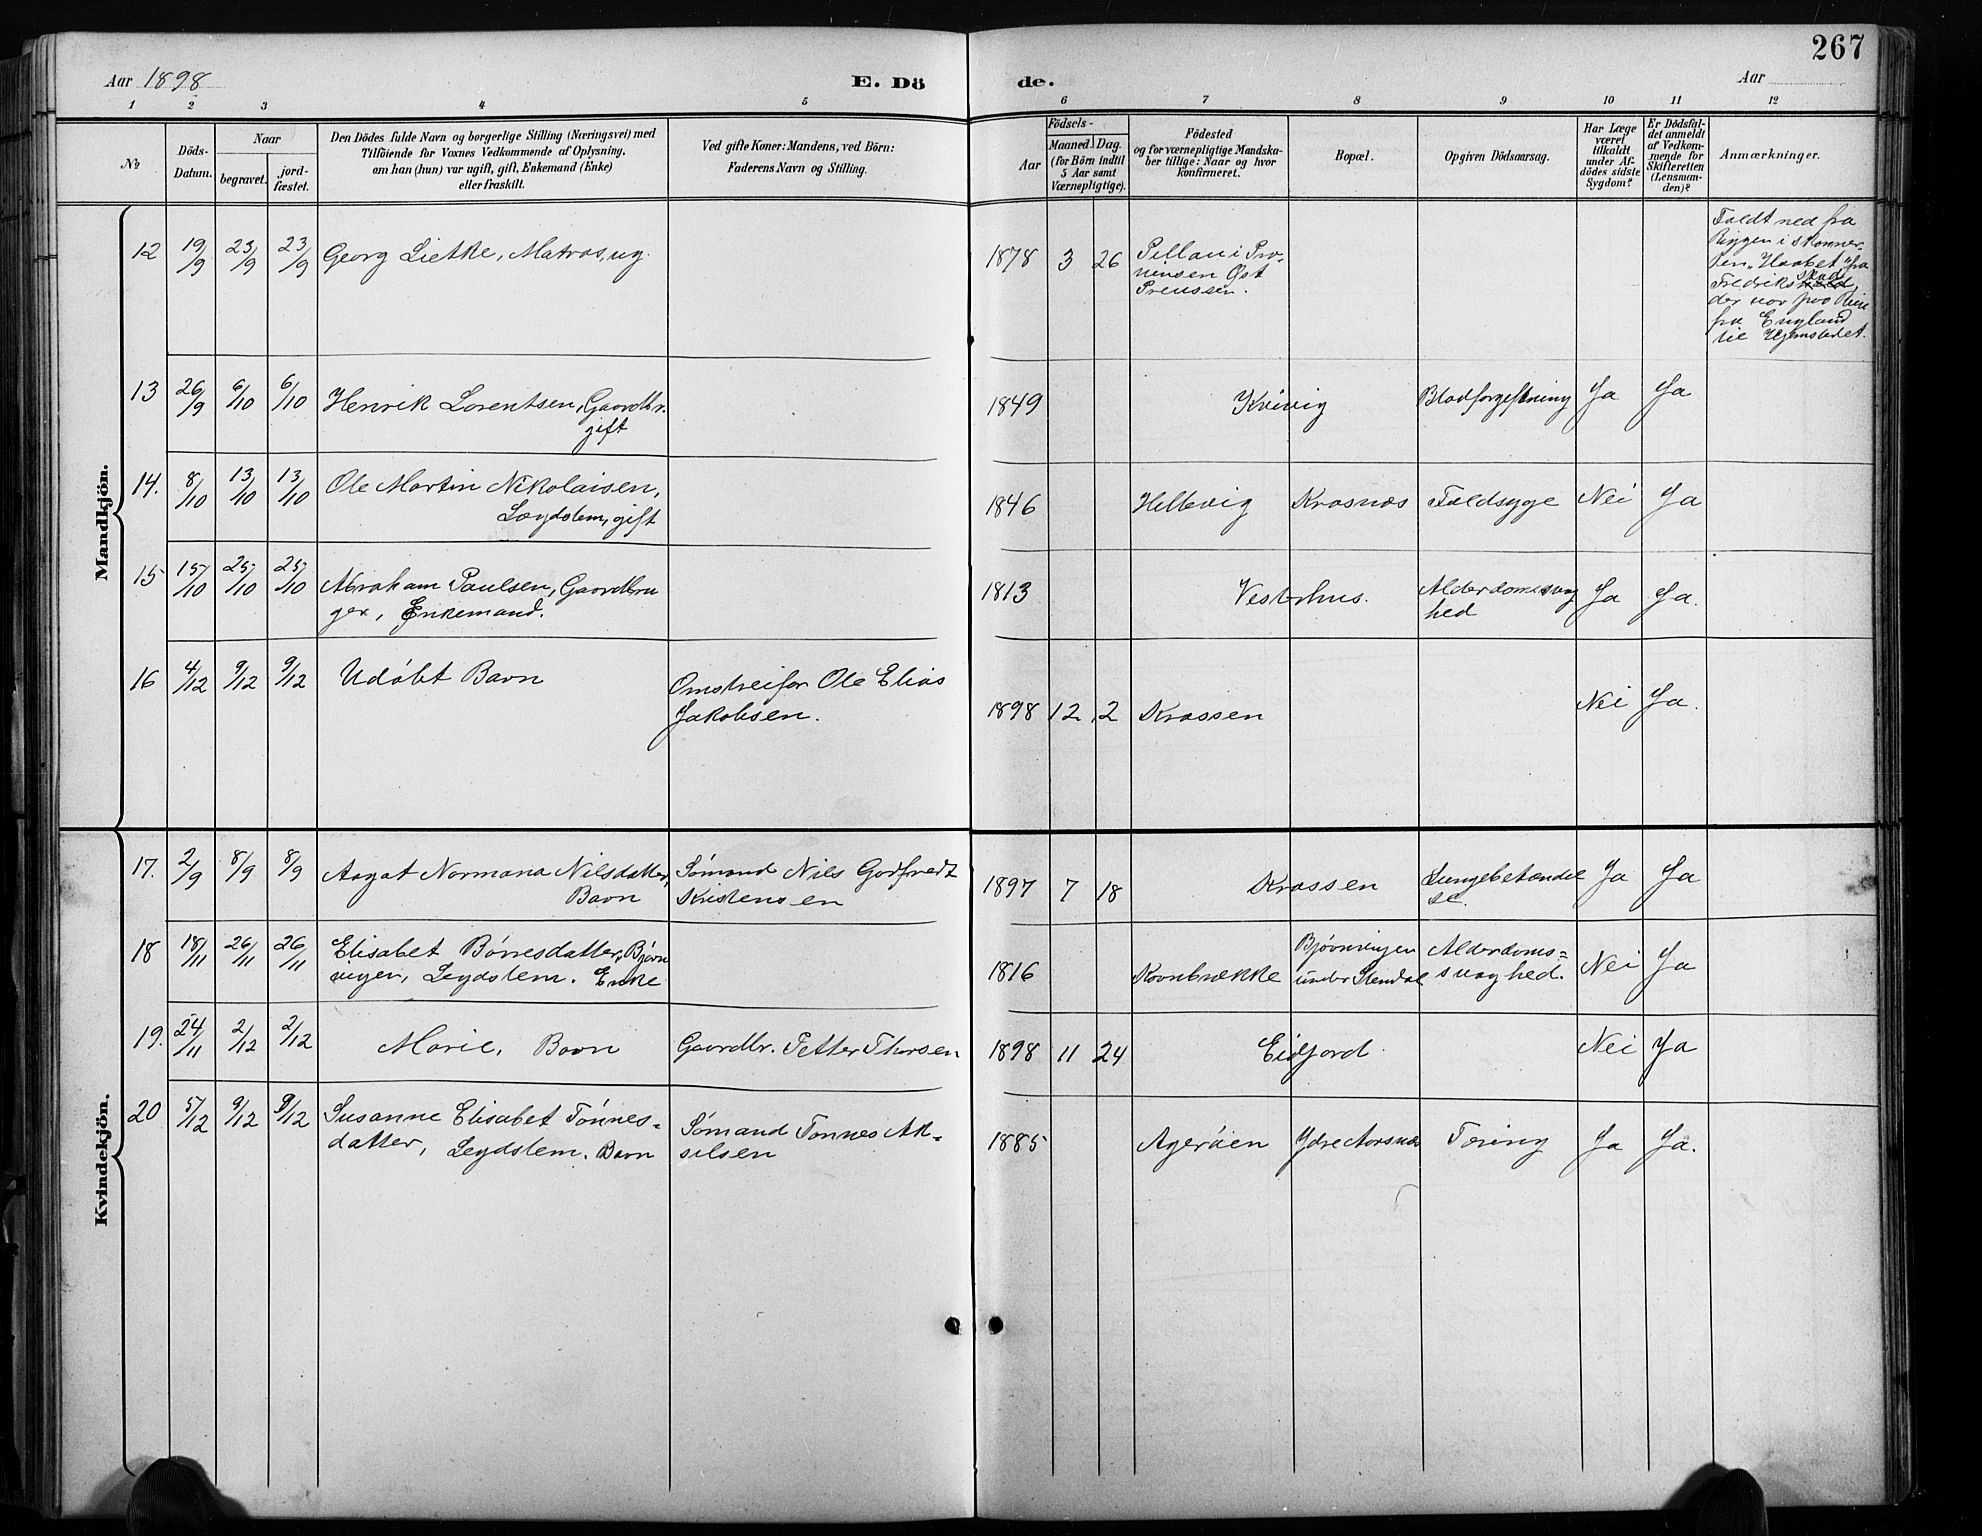 267
Aar 1898
E. Dö
de.
Aar
1 2 3 4 5 6 7 8 9 10 11 12
№
Döds-
Datum.
Naar
begravet.
jord-
fæstet.
Den Dödes fulde Navn og borgerlige Stilling (Næringsvei) med
Tilföiende for Voxnes Vedkommende af Oplysning,
om han (hun) var ugift, gift, Enkemand (Enke)
eller fraskilt.
Ved gifte Koner: Mandens, ved Börn:
Faderens Navn og Stilling.
Födsels-
Aar
Maaned. Dag.
(for Börn indtil
5 Aar samt
Værnepligtige).
Födested
og for værnepligtige Mandska-
ber tillige: Naar og hvor
konfirmeret.
Bopæl.
Opgiven Dödsaarsag.
Har Læge
været
tilkaldt
under Af-
dödes sidste
Sygdom?
Er Dödsfal-
det anmeldt
af Vedkom-
mende for
Skifteretten
(Lensman-
den)?
Anmærkninger.
Mandkjön.
12 19/9 23/9 23/9 Georg Lietke, Matros, ug. 1878 3 26 Pillau i Pro-
vinsen Øst
Preussen.
Faldt ned fra
Riggen i Skonner-
ten „Haabet" fra
Fredrikstad,
der var paa Reise
fra England
til Hjemstedet.
13 26/9 6/10 6/10 Henrik Lorentsen, Gaardbr.
gift
1849 Kvivig Blodforgiftning Ja Ja
14. 8/10 13/10 13/10 Ole Martin Nikolaisen,
Lægdslem, gift
1846 Hellevig Krosnæs Faldsyge Nei Ja
15 15/10 25/10 25/10 Abraham Paulsen, Gaardbru
ger, Enkemand.
1813 Vesterhus. Alderdomssvag
hed Ja Ja.
16 4/12 9/12 9/12 Udøbt Barn Omstreifer Ole Elias
Jakobsen.
1898 12 2 Krossen Nei Ja.
Kvindekjön.
17. 2/9 8/9 8/9 Aagot Normana Nilsdatter,
Barn
Sømand Nils Godfredt
Kristensen
1897 7 18 Krossen Lungebetændel
se. Ja Ja
18 18/11 26/11 26/11 Elisabet Børresdatter, Bjørn
ingen, Legdslem. Enke
1816 Kornbrække Bjørningen
under Stendal Alderdoms=
svaghed. Nei Ja
19. 24/11 2/12 2/12 Marie, Barn Gaardbr. Petter Thorsen
1898 11 24 Eidfjord Nei Ja
20 5/12 9/12 9/12 Susanne Elisabet Tønnes=
datter, Legdslem. Barn
Sømand Tønnes Ak-
selsen
1885 Agerøen Ydre Aarsnæs Tæring Ja Ja.